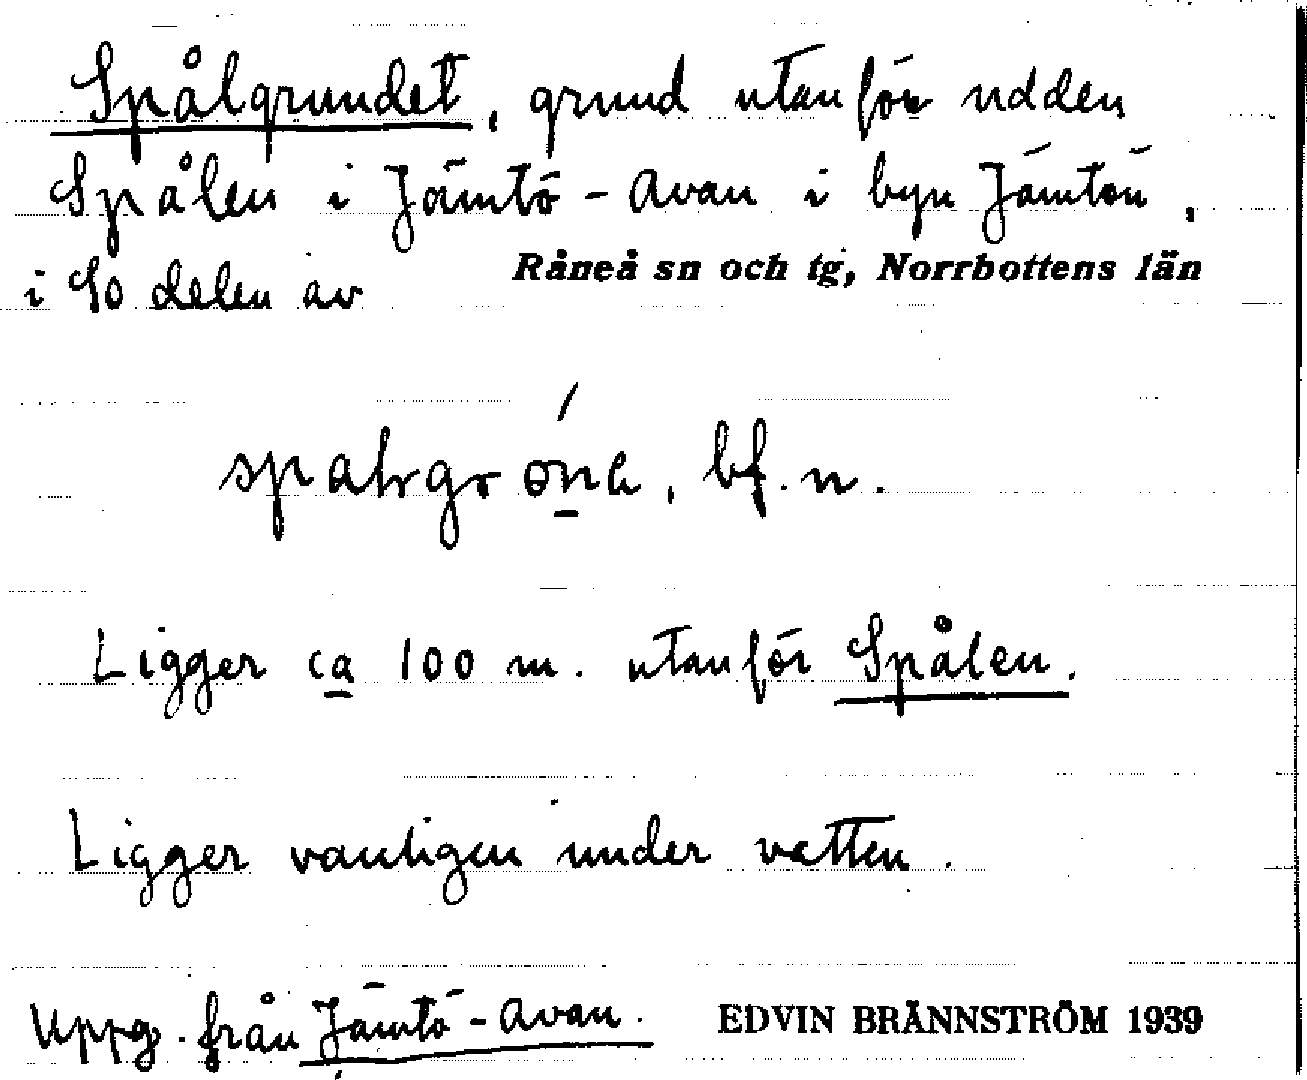 Spålgrundet, grund utanför udden
Spålen i Jämtö-Avan i byn Jämtön,
i SO delen av Råneå sn och tg, Norrbottens län
bf. n.
Ligger ca 100 m. utanför Spålen.
Ligger vanligen under vatten.
Uppg. från Jämtö-Avan. EDVIN BRÄNNSTRÖM 1939